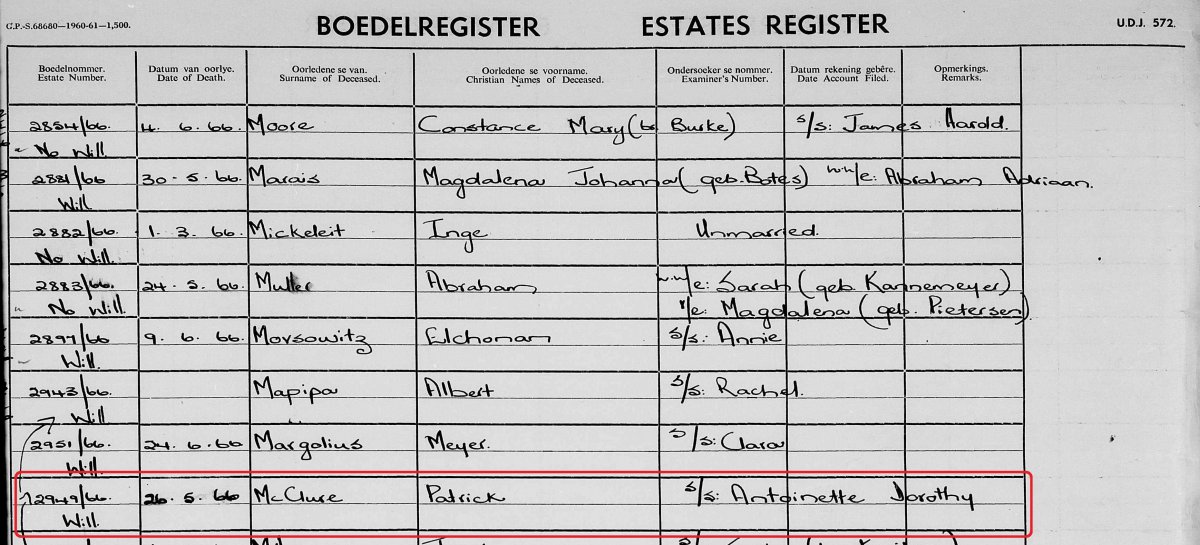 C.P.-S.68680—1960-61—1,500.
BOEDELREGISTER ESTATES REGISTER
U.D.J. 572.
Boedelnommer. Datum van oorlye. Oorledene se van. Oorledene se voorname. Ondersoeker se nommer. Datum rekening gebêre. Opmerkings.
Estate Number. Date of Death. Surname of Deceased. Christian Names of Deceased. Examiner's Number. Date Account Filed. Remarks.
2854/66. 4. 6. 66. Moore Constance Mary ( Burke) s/s: James Harold.
No Will.
2881/66 30. 5. 66. Marais Magdalena Johanna (geb. Botes) w/w/e: Abraham Adriaan.
Will
2882/66. 1. 3. 66. Mickeleit Inge Unmarried.
No Will.
2883/66. 24. 5. 66. Muller Abraham w/w/e: Sarah (geb. Kannemeyer)
No Will r/e: Magdalena (geb. Pietersen)
2897/66 9. 6. 66. Movsowitz Elchonan s/s: Annie
Will.
2943/66. Mapipa Albert s/s: Rachel.
Will
2951/66. 24. 6. 66 Margolius Meyer. s/s: Clara
Will.
2949/66. 26. 5. 66 McCluse Patrick s/s: Antoinette Dorothy
Will.